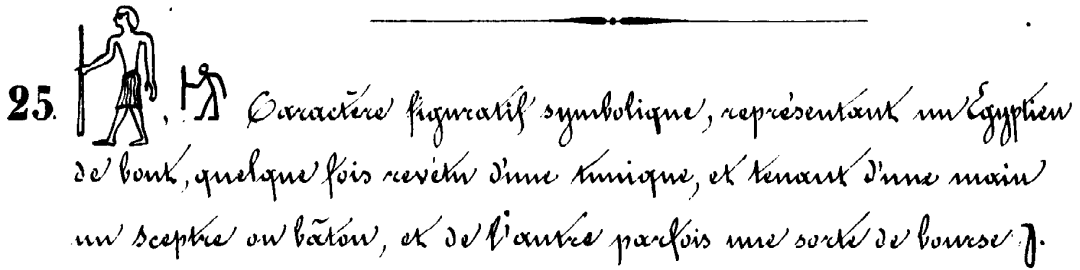 25. Caractère figuratif symbolique, représentant un Égyptien
de bout, quelque fois revétu d'une tunique, et tenant d'une main
un sceptre ou bâton, et de l'autre parfois une sorte de bourse